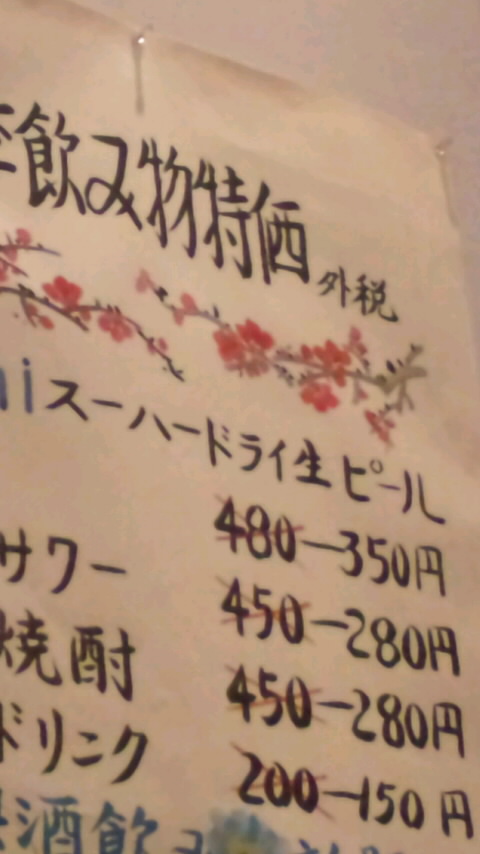 飲み物特価 外税
iスーハードライ生ピール
480―350円
サワー 450―280円
焼酎 450―280円
ドリニク 200―150円
酒飲み